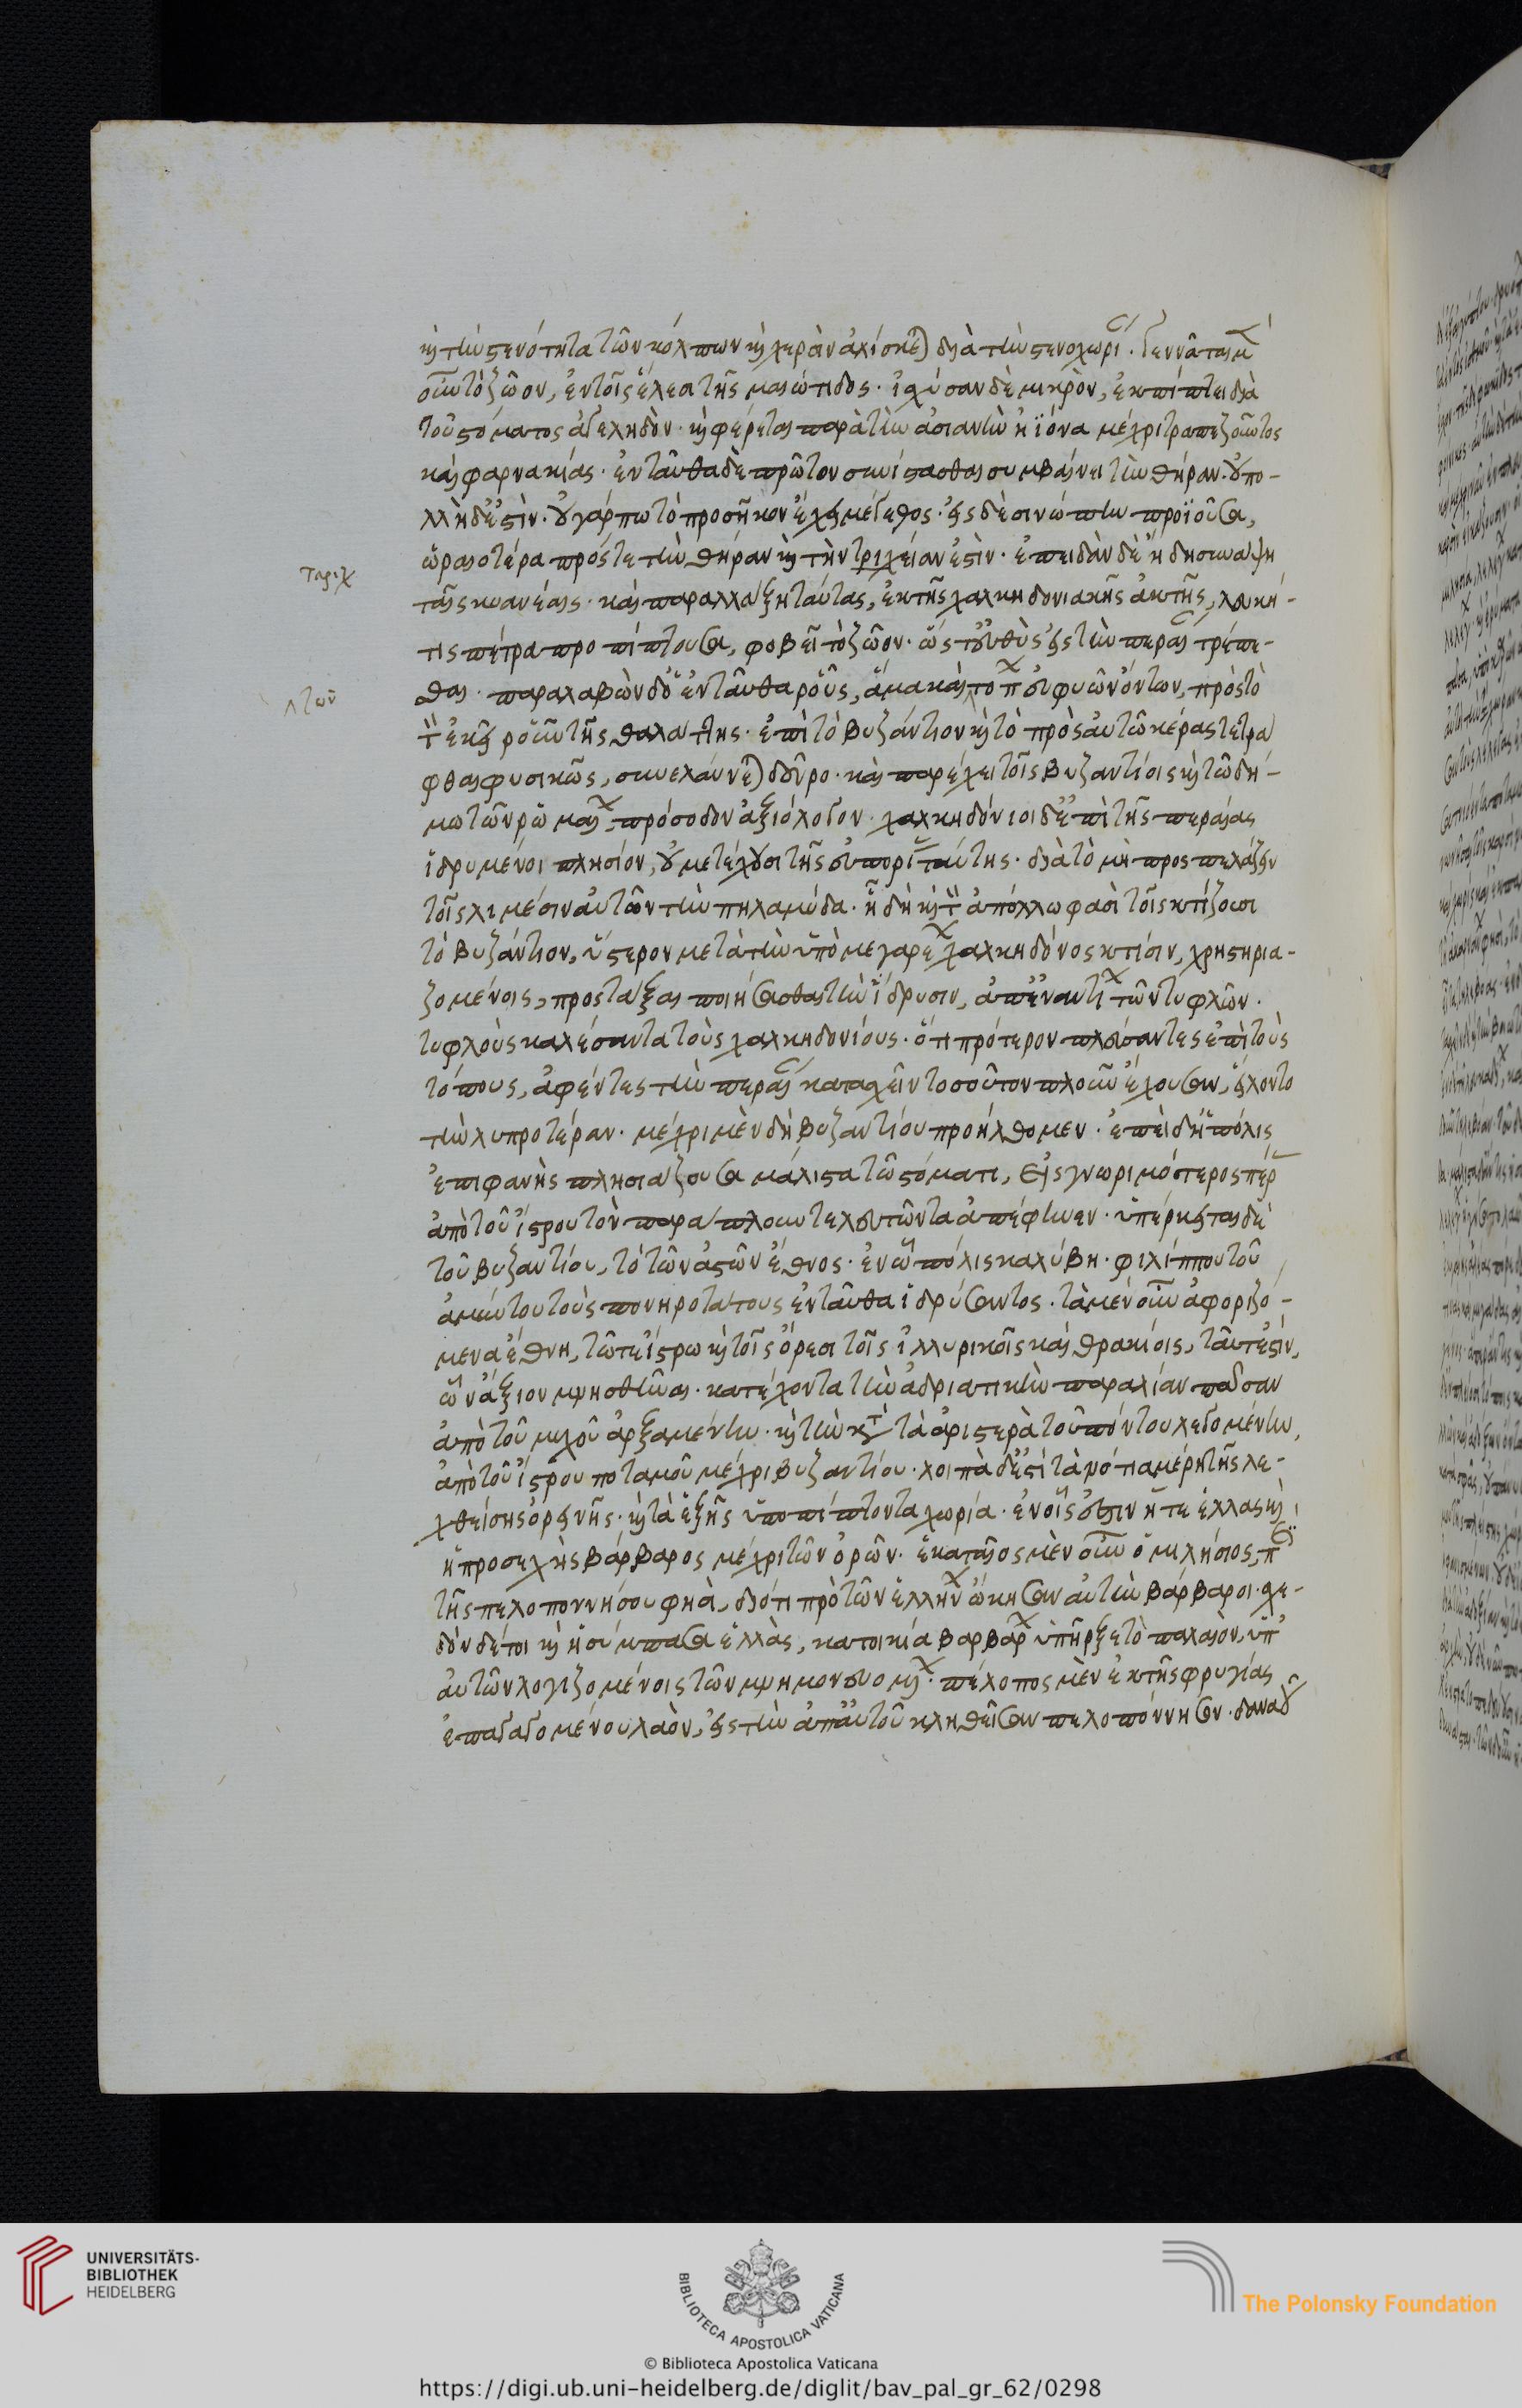 καὶ τὴν στενότητα τῶν κόλπων καὶ χερσὶν ἁλίσκεται διὰ τὴν στενοχωρίαν. γεννᾶται μὲν
οὖν τὸ ζῶον, ἐν τοῖς ἕλεσι τῆς μαιώτιδος. ἰσχύσαν δὲ μικρὸν, ἐκπίπτει διὰ
τοῦ στόματος ἀγεληδὸν. καὶ φέρεται παρὰ τὴν ἀσιανὴν ἠϊόνα μέχρι τραπεζοῦντος
καὶ φαρνακίας. ἐνταῦθα δὲ πρῶτον συνίστασθαι συμβαίνει τὴν θήραν. οὐ πο-
λλὴ δ' ἐστὶν. οὐ γάρ πω τὸ προσῆκον ἔχει μέγεθος. εἰς δὲ σινώπην προϊοῦσα,
ὡραιοτέρα πρός τε τὴν θήραν καὶ τὴν τριχείαν ἐστὶν. ἐπειδὰν δὲ ἤδη συνάψῃ
ταριχ
ταῖς κυανέαις. καὶ παραλλάξῃ ταύτας, ἐκ τῆς χαλκηδονιακῆς ἀκτῆς, λευκή
τις πέτρα προπίπτουσα, φοβεῖ τὸ ζῶον. ὥστ' εὐθὺς εἰς τὴν περαίαν τρέπε-
σθαι. παραλαβὼν δ' ὁ ἐνταῦθα ῥοῦς, ἅμα καὶ τόπων εὐφυῶν ὄντων, πρὸς τὸ
τῶν
τὸν ἐκεῖ ῥοῦν τῆς θαλάττης. ἐπὶ τὸ βυζάντιον καὶ τὸ πρὸς αὐτῶ κέρας τετρά
φθαι φυσικῶς, συνελαύνεται δεῦρο. καὶ παρέχει τοῖς βυζαντίοις καὶ τῶ δή-
μω τῶν ῥωμαίων, πρόσοδον ἀξιόλογον. χαλκηδόνιοι δ' ἐπὶ τῆς περαίας
ἱδρυμένοι πλησίον, οὐ μετέχουσι τῆς εὐπορίας ταύτης. διὰ τὸ μὴ προσπελάζειν
τοῖς λιμέσιν αὐτῶν τὴν πηλαμύδα. ᾗ δὴ καὶ τὸν ἀπόλλω φασὶ τοῖς κτίζουσι
τὸ βυζάντιον, ὕστερον μετὰ τὴν ὑπὸ μεγαρέων χαλκηδόνος κτίσιν, χρηστηρια-
ζομένοις, προστάξαι ποιήσασθαι τὴν ἵδρυσιν, ἀπεναντίον τῶν τυφλῶν.
τυφλοὺς καλέσαντα τοὺς χαλκηδονίους. ὅτι πρότερον πλεύσαντες ἐπὶ τοὺς
τόπους, ἀφέντες τὴν περαίαν κατασχεῖν τοσοῦτον πλοῦν ἔχουσαν, εἵλοντο
τὴν λυπροτέραν. μέχρι μὲν δὴ βυζαντίου προήλθομεν. ἐπειδὴ ἡ πόλις
ἐπιφανὴς πλησιάζουσα μάλιστα τῶ στόματι, εἰς γνωριμώτερος πέρας
ἀπὸ τοῦ ἴστρου τὸν παράπλουν τελευτῶντα ἀπέφηνεν. ὑπέρκειται δὲ
τοῦ βυζαντίου, τὸ τῶν ἀστῶν ἔθνος. ἐν ὧ πόλις καλύβη. φιλίππου τοῦ
ἀμύντου τοὺς πονηροτάτους ἐνταῦθα ἱδρύσαντος. τὰ μὲν οὖν ἀφοριζό-
μενα ἔθνη, τῶ τε ἴστρω καὶ τοῖς ὄρεσι τοῖς ἰλλυρικοῖς καὶ θρακίοις, ταῦτ' ἐστὶν,
ὧν ἄξιον μνησθῆναι. κατέχοντα τὴν ἀδριατικὴν παραλίαν πᾶσαν
ἀπὸ τοῦ μυχοῦ ἀρξαμένην. καὶ τὴν κατὰ τὰ ἀριστερὰ τοῦ πόντου λεγομένην,
ἀπὸ τοῦ ἴστρου ποταμοῦ μέχρι βυζαντίου. λοιπὰ δ' ἐστὶ τὰ νότια μέρη τῆς λε-
χθείσης ὀρεινῆς. καὶ τὰ ἑξῆς ὑποπίπτοντα χωρία. ἐν οἷς ἐστιν ἥ τε ἑλλὰς καὶ
ἡ προσεχὴς βάρβαρος μέχρι τῶν ὀρῶν. ἑκαταῖος μὲν οὖν ὁ μιλήσιος, περὶ
τῆς πελοποννήσου φησὶν, διότι πρὸ τῶν ἑλλήνων ᾤκησαν αὐτὴν βάρβαροι. σχε-
δὸν δέ τοι καὶ ἡ σύμπασα ἑλλὰς, κατοικία βαρβάρων ὑπῆρξε τὸ παλαιὸν, ὑπ'
αὐτῶν λογιζομένοις τῶν μνημονευομένων. πέλοπος μὲν ἐκ τῆς φρυγίας
ἐπαγαγομένου λαὸν, εἰς τὴν ἀπ' αὐτοῦ κληθεῖσαν πελοπόννησον. δαναοῦ
UNIVERSITÄTS-
BIBLIOTHEK
HEIDELBERG
BIBLIOTECA APOSTOLICA VATICANA
The Polonsky Foundation
© Biblioteca Apostolica Vaticana
https://digi.ub.uni-heidelberg.de/diglit/bav_pal_gr_62/0298